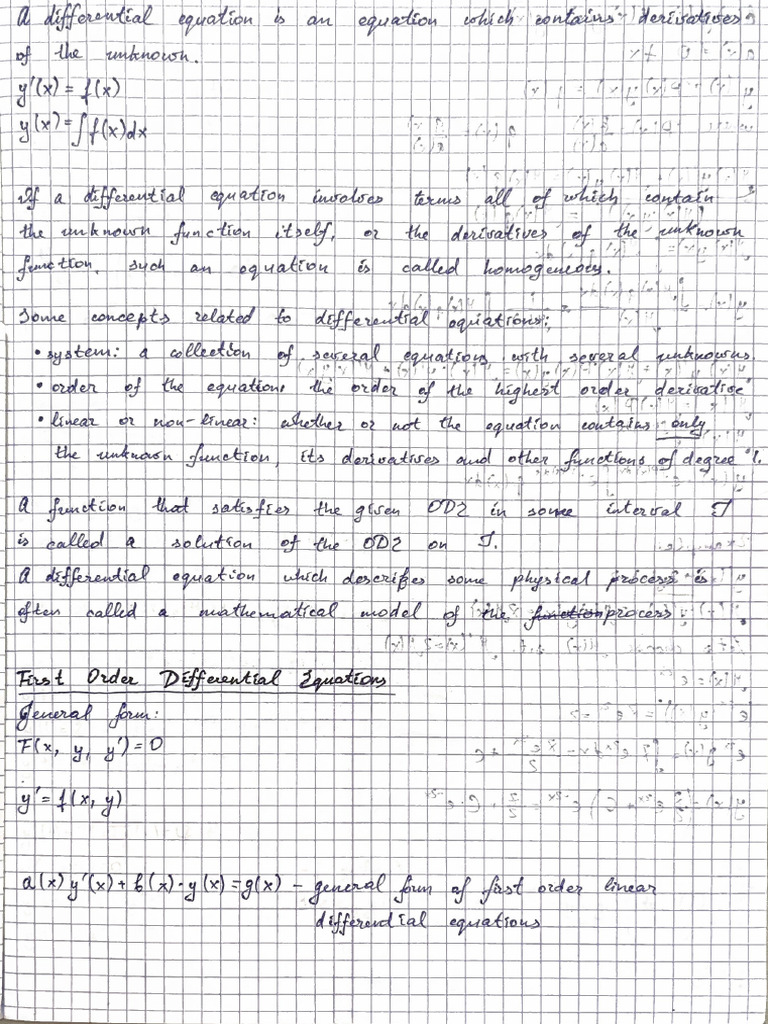 A differential equation is an equation which contains derivatives
of the unknown.
y'(x) = f(x)
y(x) = ∫f(x)dx
If a differential equation involves terms all of which contain
the unknown function itself, or the derivatives of the unknown
function, such an equation is called homogeneous.
Some concepts related to differential equations:
• system: a collection of several equations with several unknowns
• order of the equation: the order of the highest order derivative
• linear or non-linear: whether or not the equation contains only
the unknown function, its derivatives and other functions of degree 1.
A function that satisfies the given ODE in some interval I
is called a solution of the ODE on I.
A differential equation which describes some physical process is
often called a mathematical model of the function process
First Order Differential Equations
General form:
F(x, y, y') = 0
y' = f(x, y)
a(x) y'(x) + b(x) · y(x) = g(x) - general form of first order linear
differential equations